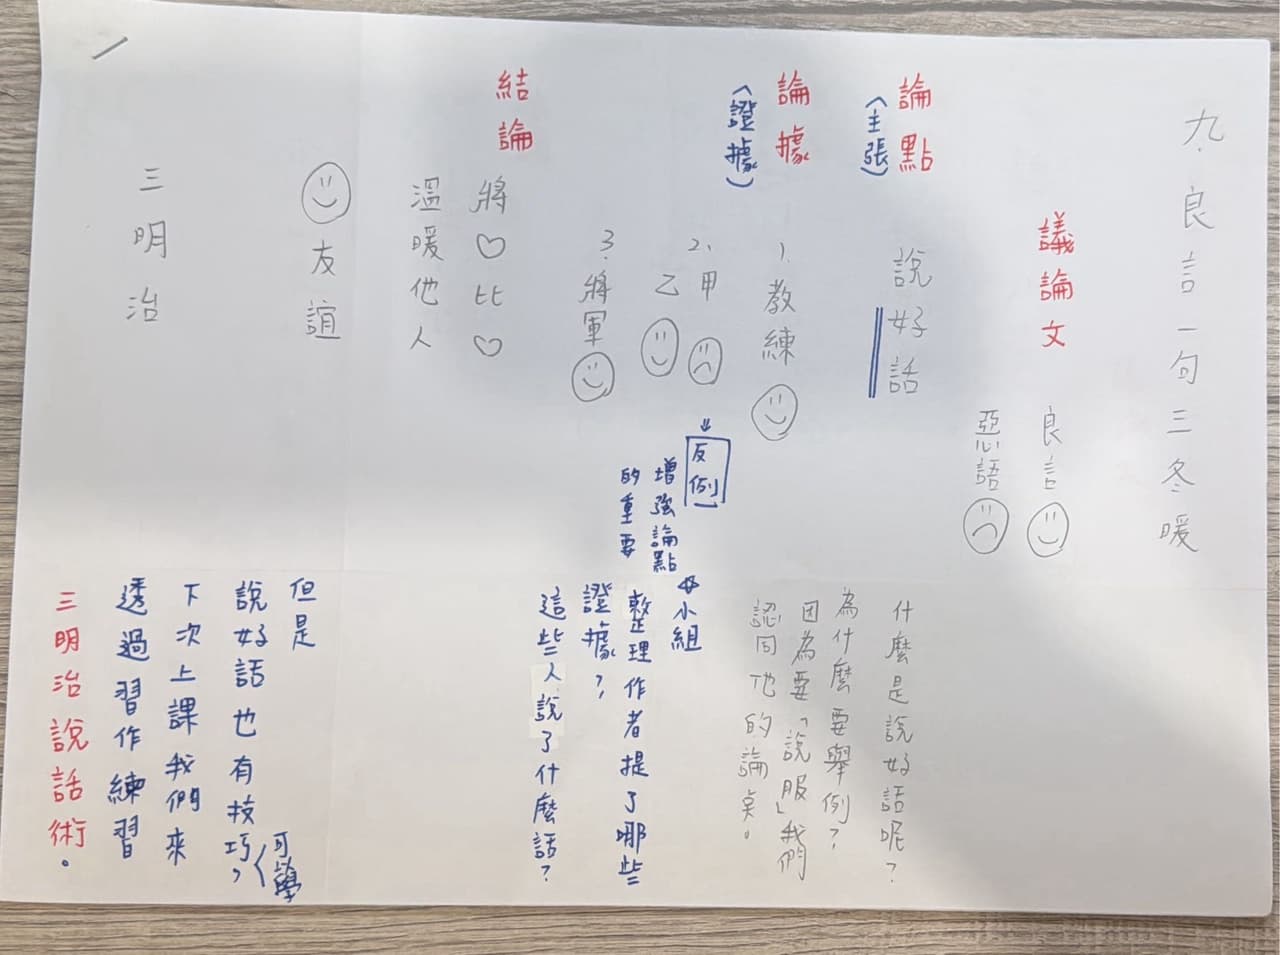 九、良言一句三冬暖
議論文
良言
惡語
論點
(主張)
說好話
什麼是說好話呢?
為什麼要舉例?
因為要「說服」我們
認同他的論點。
論據
(證據)
1.教練
2.甲
乙
3.將軍
反例
增強論點
的重要
小組
整理作者提了哪些
證據?
這些人說了什麼話?
結論
將♡比♡
溫暖他人
友誼
三明治
但是
說好話也有技巧,
可學
下次上課我們來
透過習作練習
三明治說話術。